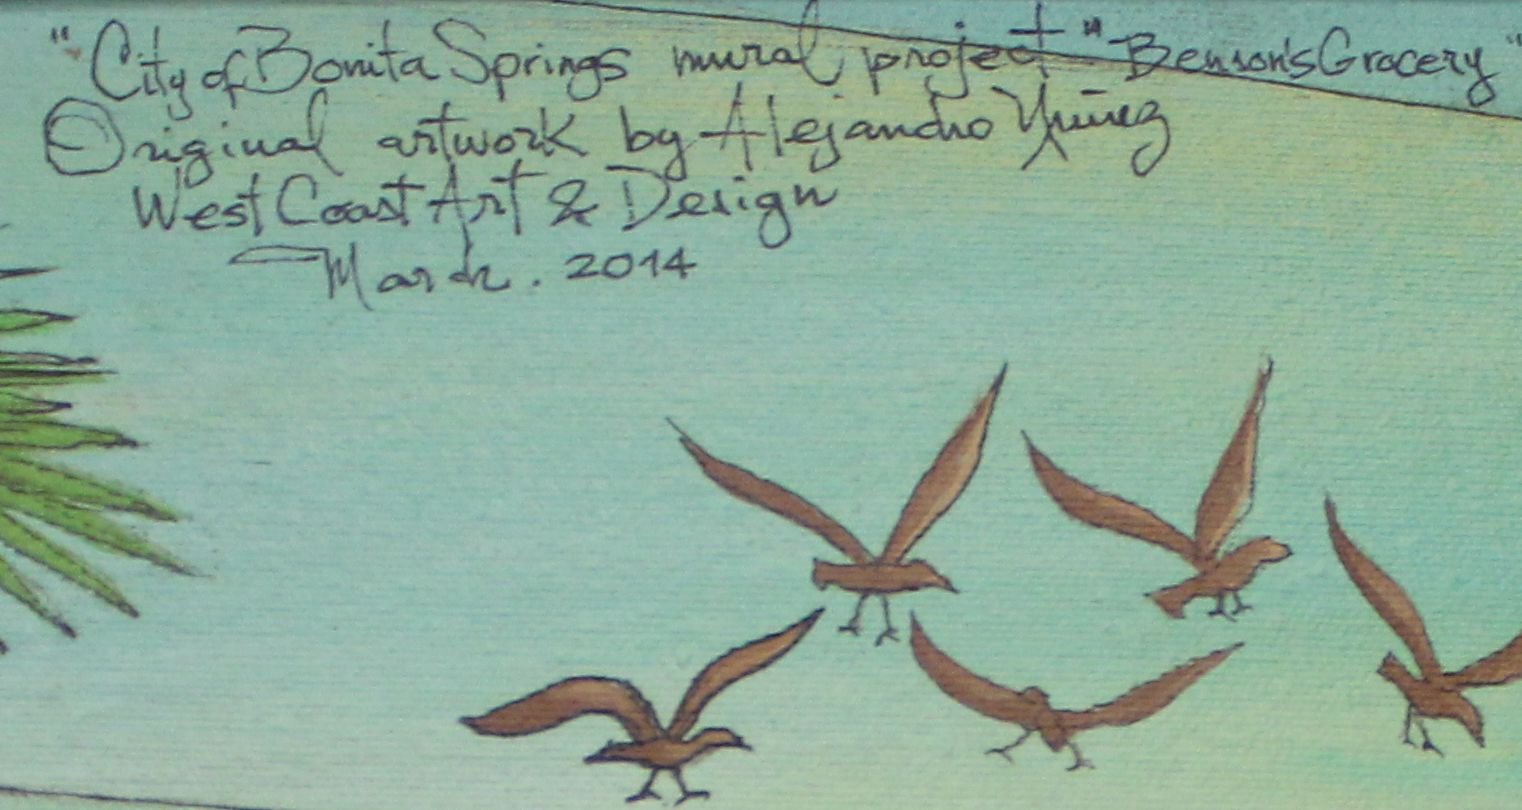 "City of Bonita Springs mural project "Benson's Gracery"
Original artwork by Alejandro Yúñez
West Coast Art & Design
March. 2014